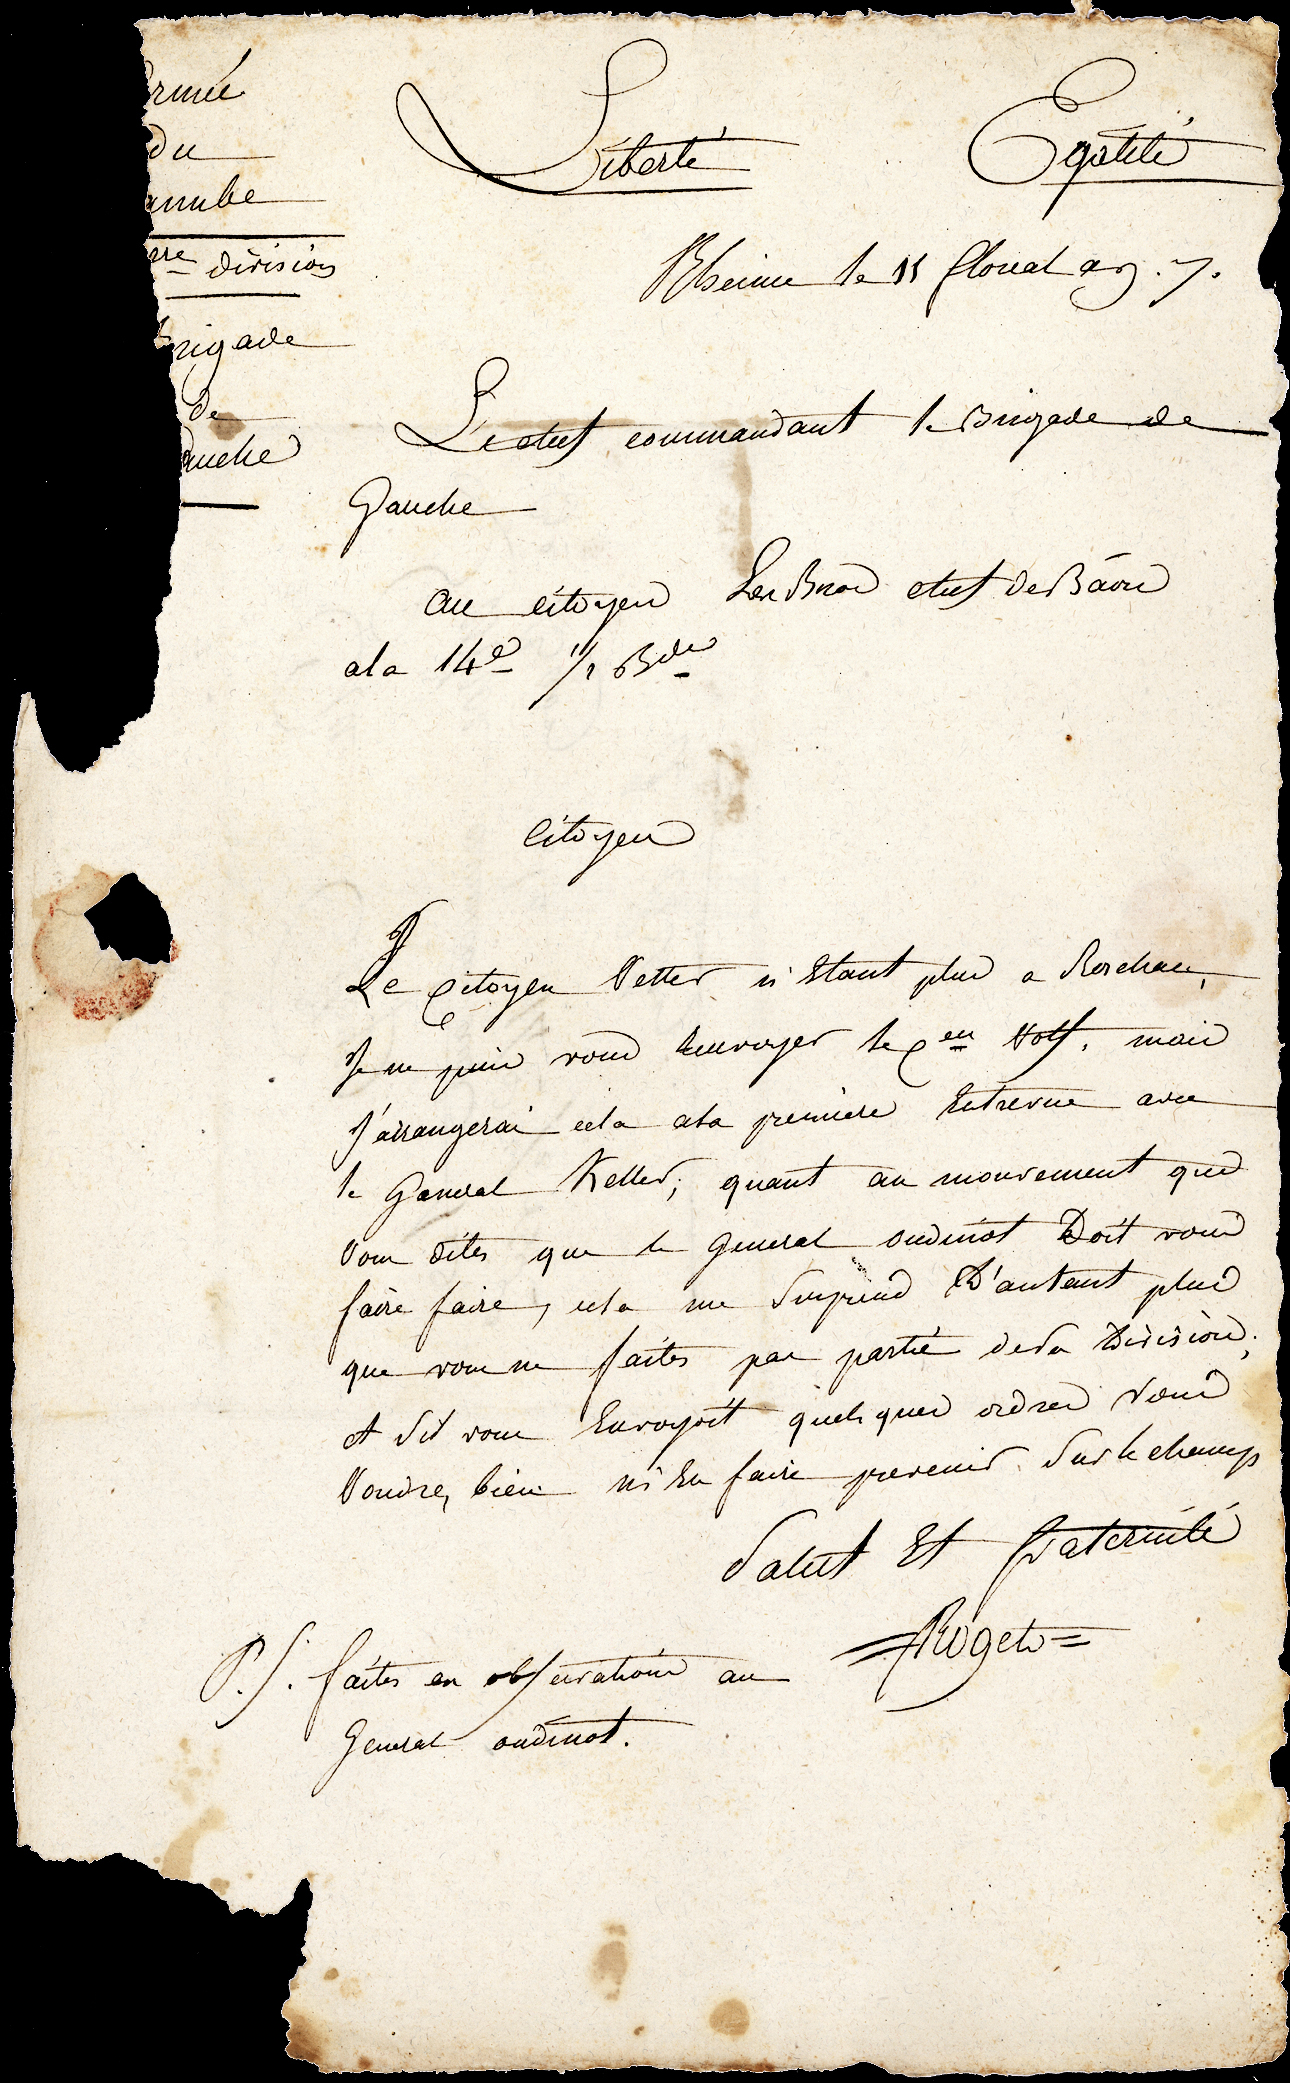 rmée
du
anube
re division
brigade
de
auche
Liberté Egalité
Rheinec le 11 floreal an. 7.
Le chef commandant la Brigade de
Gauche
au citoyen chef de B.aon
a la 14e 1/2 Bde
Citoyen
Le Citoyen Vetter n'Etant plus a Roschac,
Je ne puis vous Envoyer le Cen Wolf. mais
J'arrangerai cela a la premiere Entrevue avec
le General Keller; quant au mouvement que
Vous dites que le General oudinot Doit vous
faire faire, cela me Surprend D'autant plus
que vous ne faites pas partie de sa Division;
et S'il vous Envoyoit quelques ordres Vous
Voudrez bien m'En faire prevenir Sur le champ
Salut Et fraternité
Roget
P.S. faites en observations au
General oudinot.